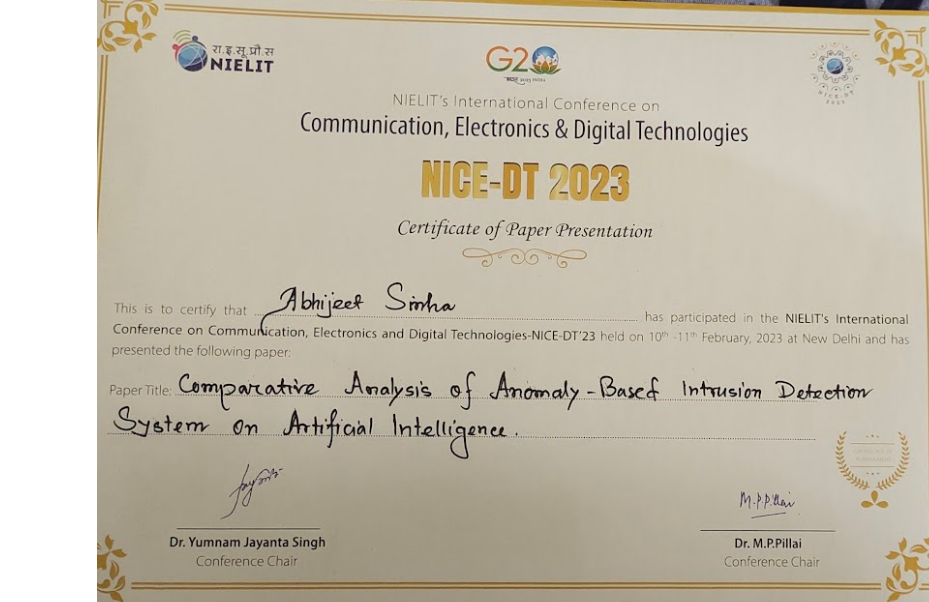 रा.इ.सू.प्रौ.सं
NIELIT
G20
NIELIT's International Conference on
Communication, Electronics & Digital Technologies
NICE-DT 2023
Certificate of Paper Presentation
This is to certify that Abhijeet Sinha has participated in the NIELIT's International
Conference on Communication, Electronics and Digital Technologies-NICE-DT'23 held on 10th -11th February, 2023 at New Delhi and has
presented the following paper:
Paper Title: Comparative Analysis of Anomaly-Based Intrusion Detection
System on Artificial Intelligence.
M.P.Pillai
Dr. Yumnam Jayanta Singh
Conference Chair
Dr. M.P.Pillai
Conference Chair